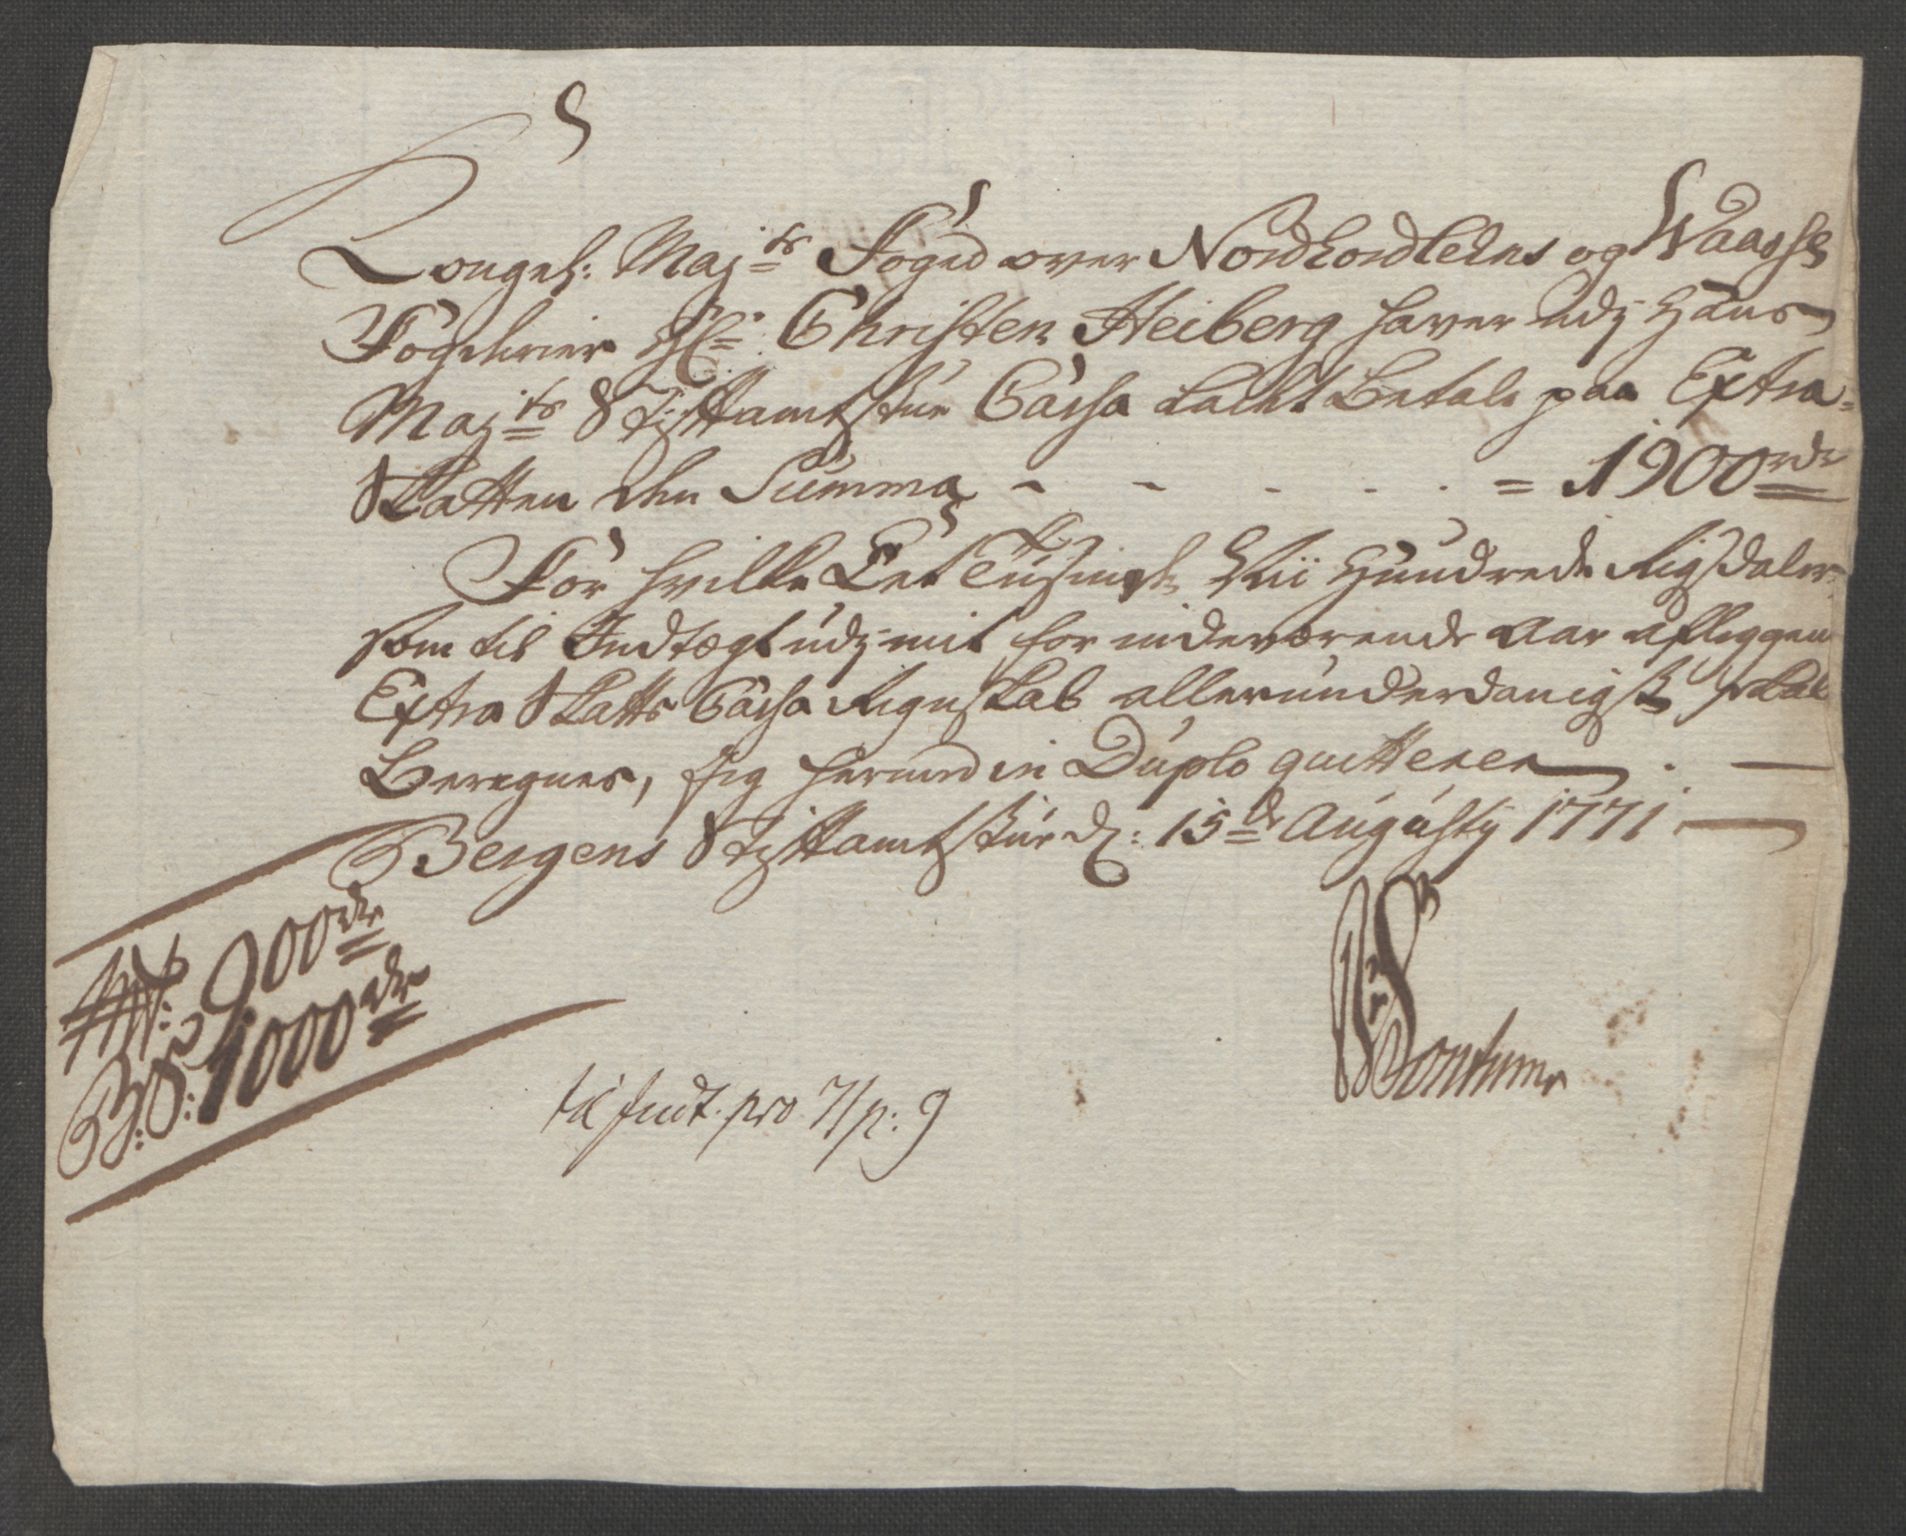 Kongel: Maj:ts Foged over Nordhordlehns og Waasse
Fogderier Hr: Christen Heiberg haver udj Hans
Maj:ts Stiftamtstue Cassa ladet betale paa Extra-
Skatten den Summa - - - - - = 1900rdr
For hvilke Eet Tusinde Nii Hundrede Rigsdaler
som til Indtægt udj mit for indeværende Aar aflæggen
Extra Skatts Cassa Regnskab allerunderdanigst skal
Beregnes, jeg herved in Duplo quitterer
Bergens Stiftamtstue d: 15de Augustij 1771
900rdr
B:S: 1000rdr
til Indt. pro 71 p: 9